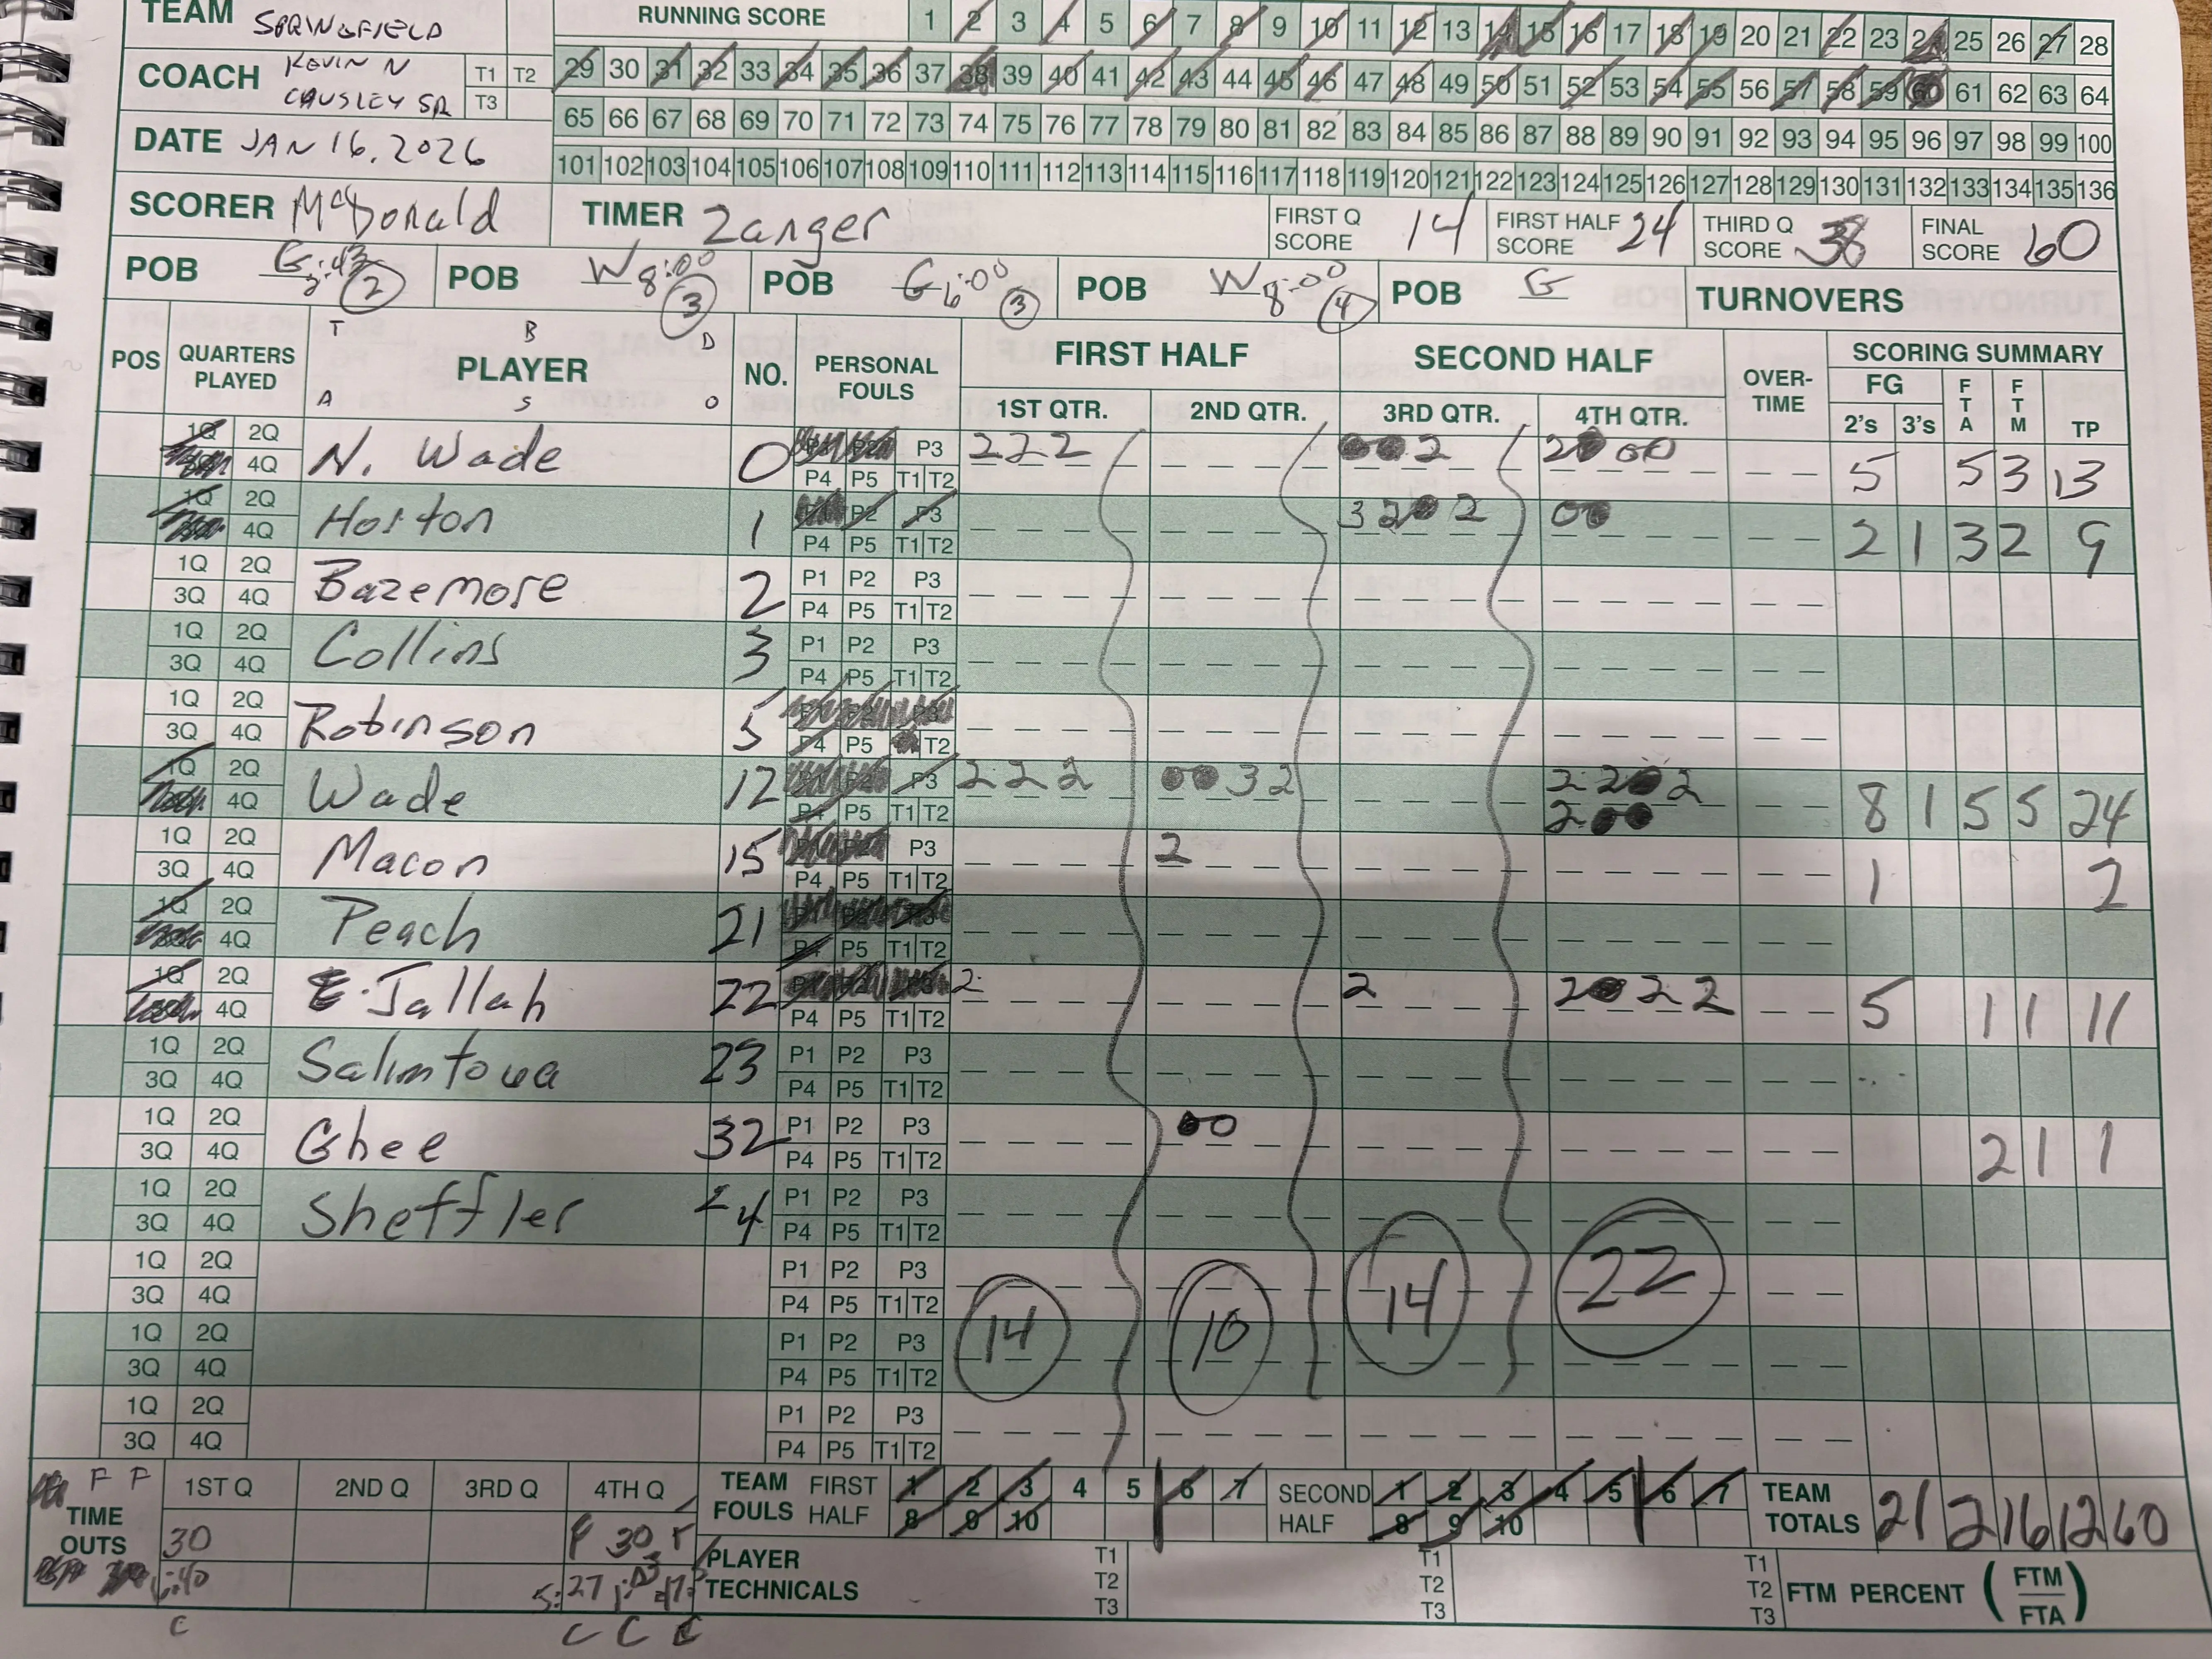 TEAM SPRINGFIELD
RUNNING SCORE 1 2 3 4 5 6 7 8 9 10 11 12 13 14 15 16 17 18 19 20 21 22 23 24 25 26 27 28
COACH KEVIN N CAUSLEY SR T1 T2 T3
29 30 31 32 33 34 35 36 37 38 39 40 41 42 43 44 45 46 47 48 49 50 51 52 53 54 55 56 57 58 59 60 61 62 63 64
65 66 67 68 69 70 71 72 73 74 75 76 77 78 79 80 81 82 83 84 85 86 87 88 89 90 91 92 93 94 95 96 97 98 99 100
DATE JAN 16, 2026
101 102 103 104 105 106 107 108 109 110 111 112 113 114 115 116 117 118 119 120 121 122 123 124 125 126 127 128 129 130 131 132 133 134 135 136
SCORER McDonald TIMER Zanger FIRST Q SCORE 14 FIRST HALF SCORE 24 THIRD Q SCORE 38 FINAL SCORE 60
POB G 2:43 2 POB W 8:00 3 POB G 6:00 3 POB W 8:00 4 POB G TURNOVERS
T B D
A S O
POS QUARTERS PLAYED PLAYER NO. PERSONAL FOULS FIRST HALF SECOND HALF OVER-TIME SCORING SUMMARY
1ST QTR. 2ND QTR. 3RD QTR. 4TH QTR. FG 2's 3's FTA FTM TP
1Q 2Q 4Q N. Wade 0 P3 P4 P5 T1 T2 2 2 2 0 0 2 2 0 0 0 5 5 3 13
1Q 2Q 4Q Horton 1 P2 P3 P4 P5 T1 T2 3 2 0 2 0 0 2 1 3 2 9
1Q 2Q 3Q 4Q Bazemore 2 P1 P2 P3 P4 P5 T1 T2
1Q 2Q 3Q 4Q Collins 3 P1 P2 P3 P4 P5 T1 T2
1Q 2Q 3Q 4Q Robinson 5 P3 P4 P5 T2
1Q 2Q 4Q Wade 12 P3 P4 P5 T1 T2 2 2 2 0 0 3 2 2 2 0 2 2 0 0 8 1 5 5 24
1Q 2Q 3Q 4Q Macon 15 P3 P4 P5 T1 T2 2 1 2
1Q 2Q 4Q Peach 21 P4 P5 T1 T2
1Q 2Q 4Q E. Jallah 22 P4 P5 T1 T2 2 2 2 0 2 2 5 1 1 11
1Q 2Q 3Q 4Q 23 P1 P2 P3 P4 P5 T1 T2
1Q 2Q 3Q 4Q Ghee 32 P1 P2 P3 P4 P5 T1 T2 0 0 2 1 1
1Q 2Q 3Q 4Q Sheffler 24 P1 P2 P3 P4 P5 T1 T2
1Q 2Q 3Q 4Q P1 P2 P3 P4 P5 T1 T2
1Q 2Q 3Q 4Q P1 P2 P3 P4 P5 T1 T2 14 10 14 22
1Q 2Q 3Q 4Q P1 P2 P3 P4 P5 T1 T2
F F 1ST Q 2ND Q 3RD Q 4TH Q TEAM FOULS FIRST HALF 1 2 3 4 5 6 7 8 9 10 SECOND HALF 1 2 3 4 5 6 7 8 9 10 TEAM TOTALS 21 2 16 12 60
TIME OUTS 30 F 30 F
6:40 5:27
PLAYER TECHNICALS T1 T2 T3 T1 T2 T3 T1 T2 T3 FTM PERCENT (FTM/FTA)
C C C C